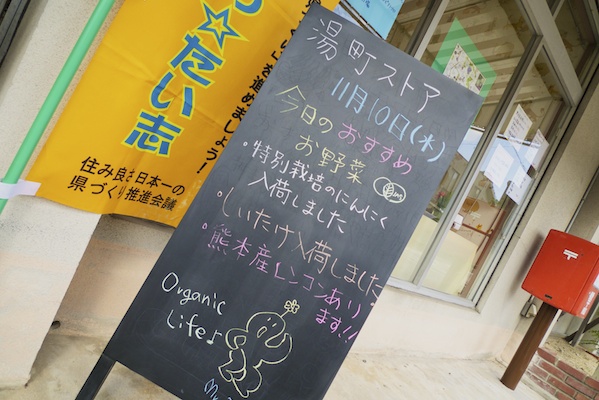 湯町ストア
11月10日(木)
今日のおすすめ
お野菜
・特別栽培のにんにく
入荷しました
・しいたけ入荷しました
・熊本産レンコンあり
ます!!
Organic
Life♪
☆たい志
住み良さ日本一の
県づくり推進会議